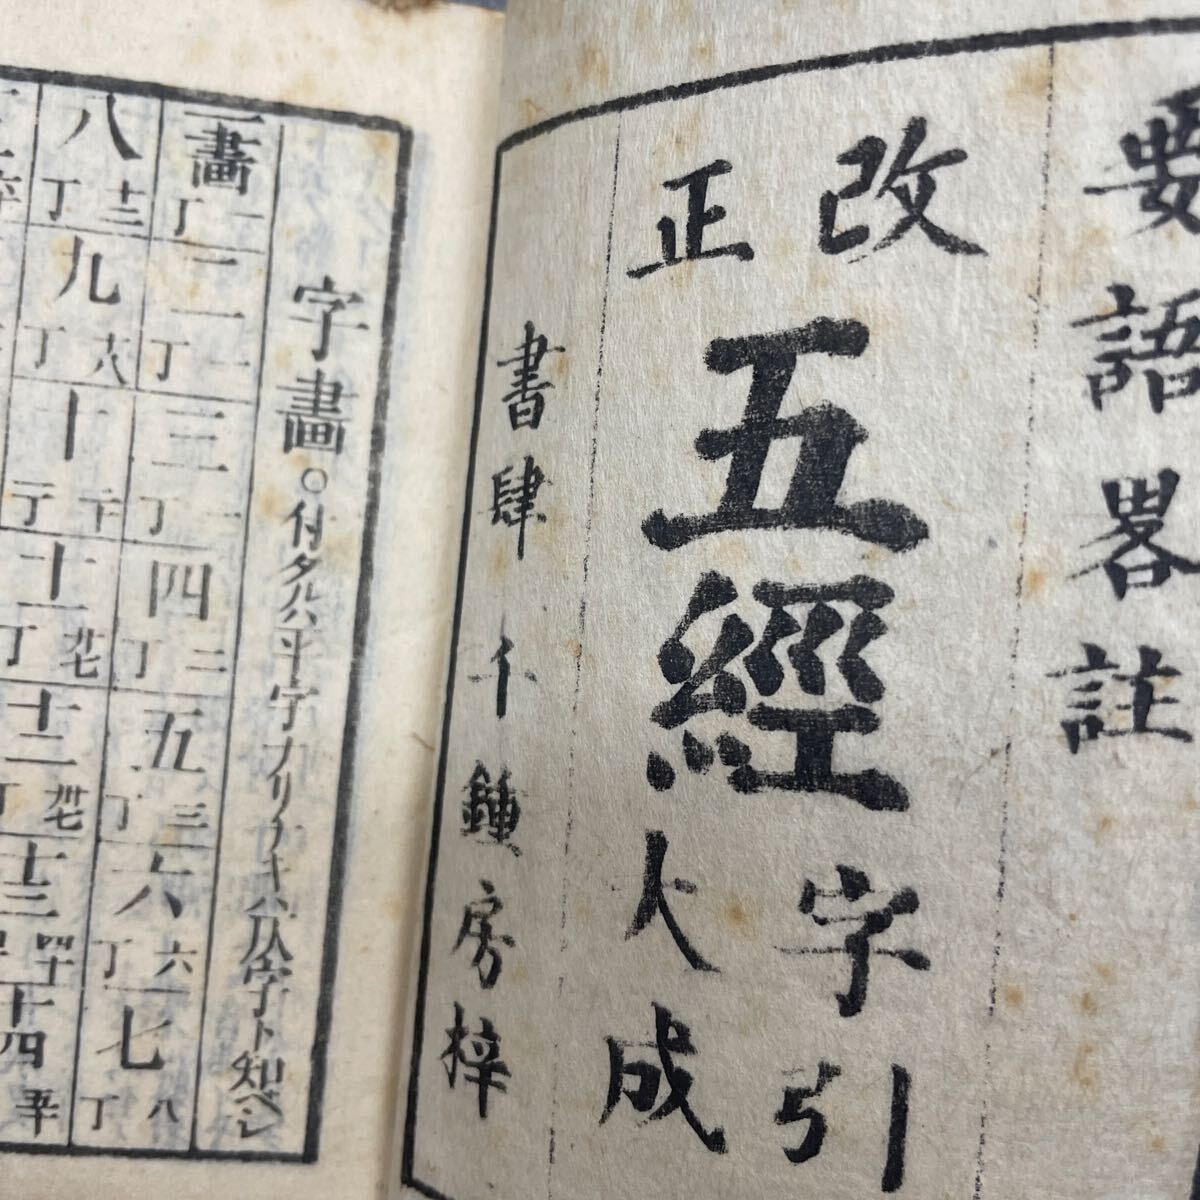 要語畧註
改正
五經
字引
大成
書肆 千鍾房梓
字畫 ○付タルハ平字ナリナキハ仄字ト知ベシ
一畫 一丁
二 一丁
三 一丁
四 二丁
五 三丁
六 六丁
七 八丁
八 十三丁
九 十八丁
十
十一 廿七丁
十二 卅七丁
十三
十四